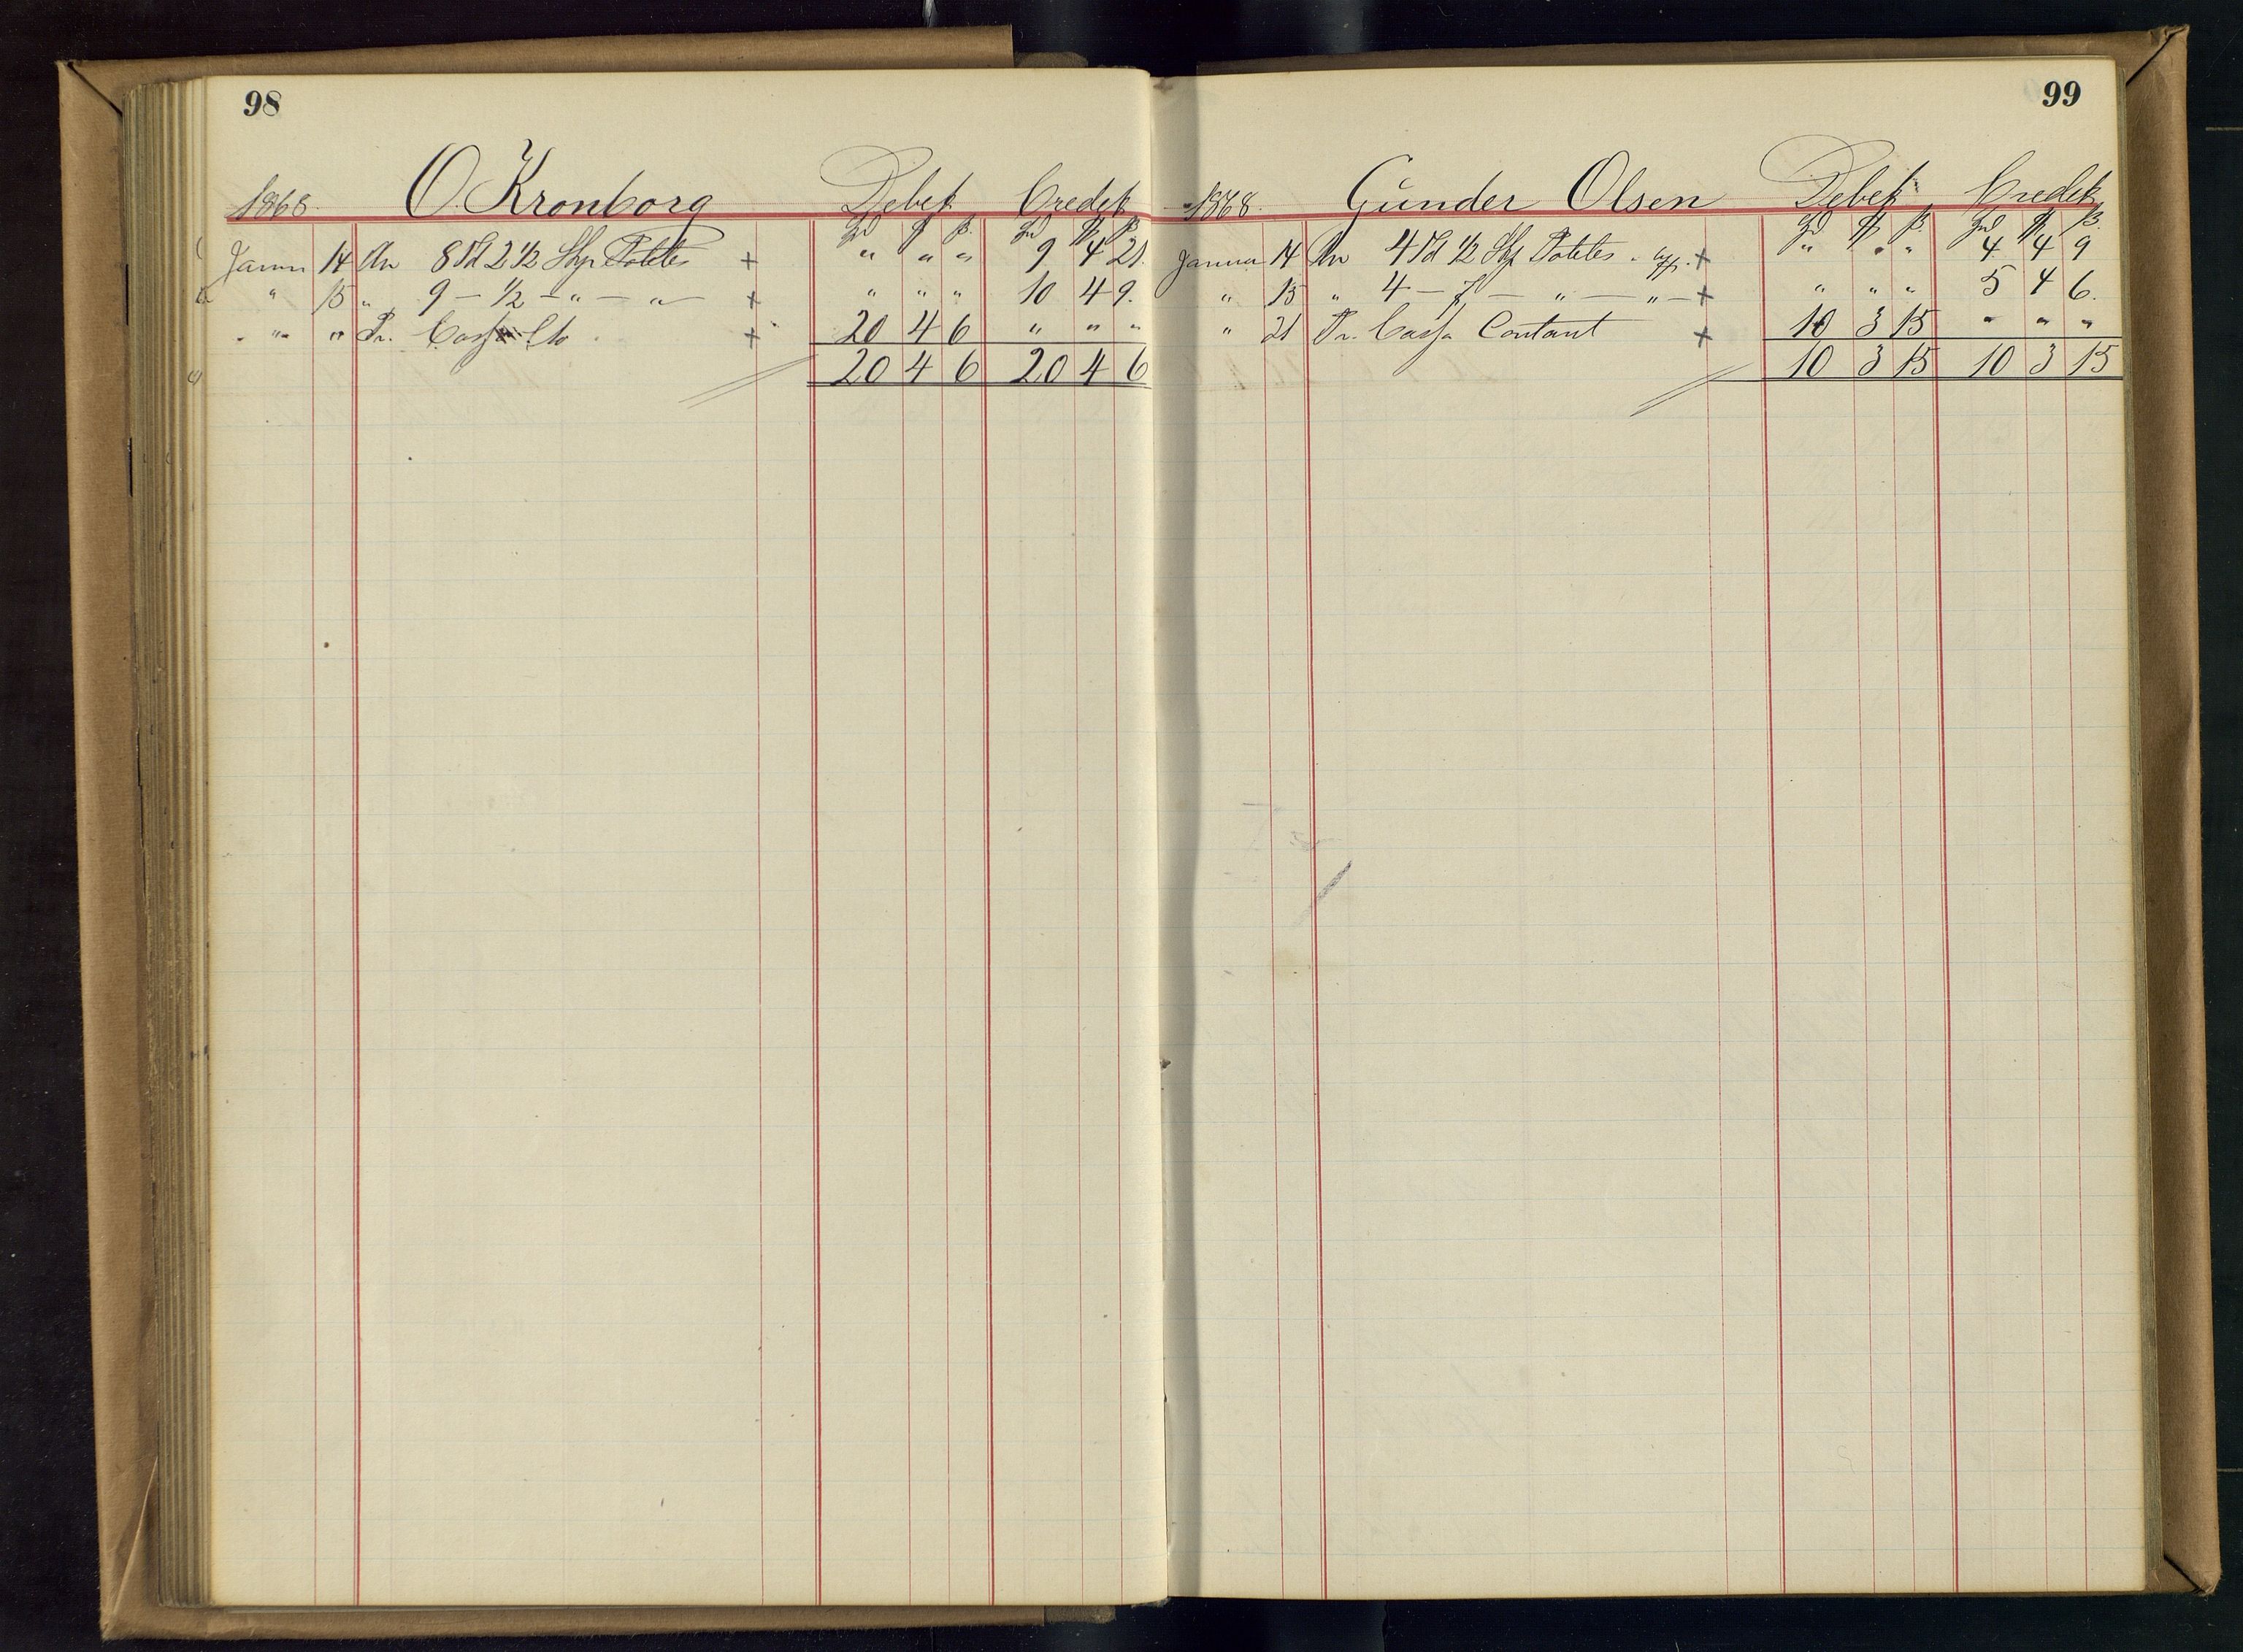 98
1868. O. Kronborg Debet Credet
Spd ß
Januar 14 An 8 Td 2 1/2 Skp Potetes + " " " 9 4 21.
" 15 " 9 — 1/2 — " — " — + " " " 10 4 9.
" " " Pr. Cassa Cto + 20 4 6 " " "
20 4 6 20 4 6
99
1868. Gunder Olsen Debet Credet
Spd ß
Januar 14 An 4 Td 1/2 Skp Potetes + " " " 4 4 9
" 15 " 4 — 7 — " — " — + " " " 5 4 6.
" 21 Pr. Cassa Contant + 10 3 15 " " "
10 3 15 10 3 15